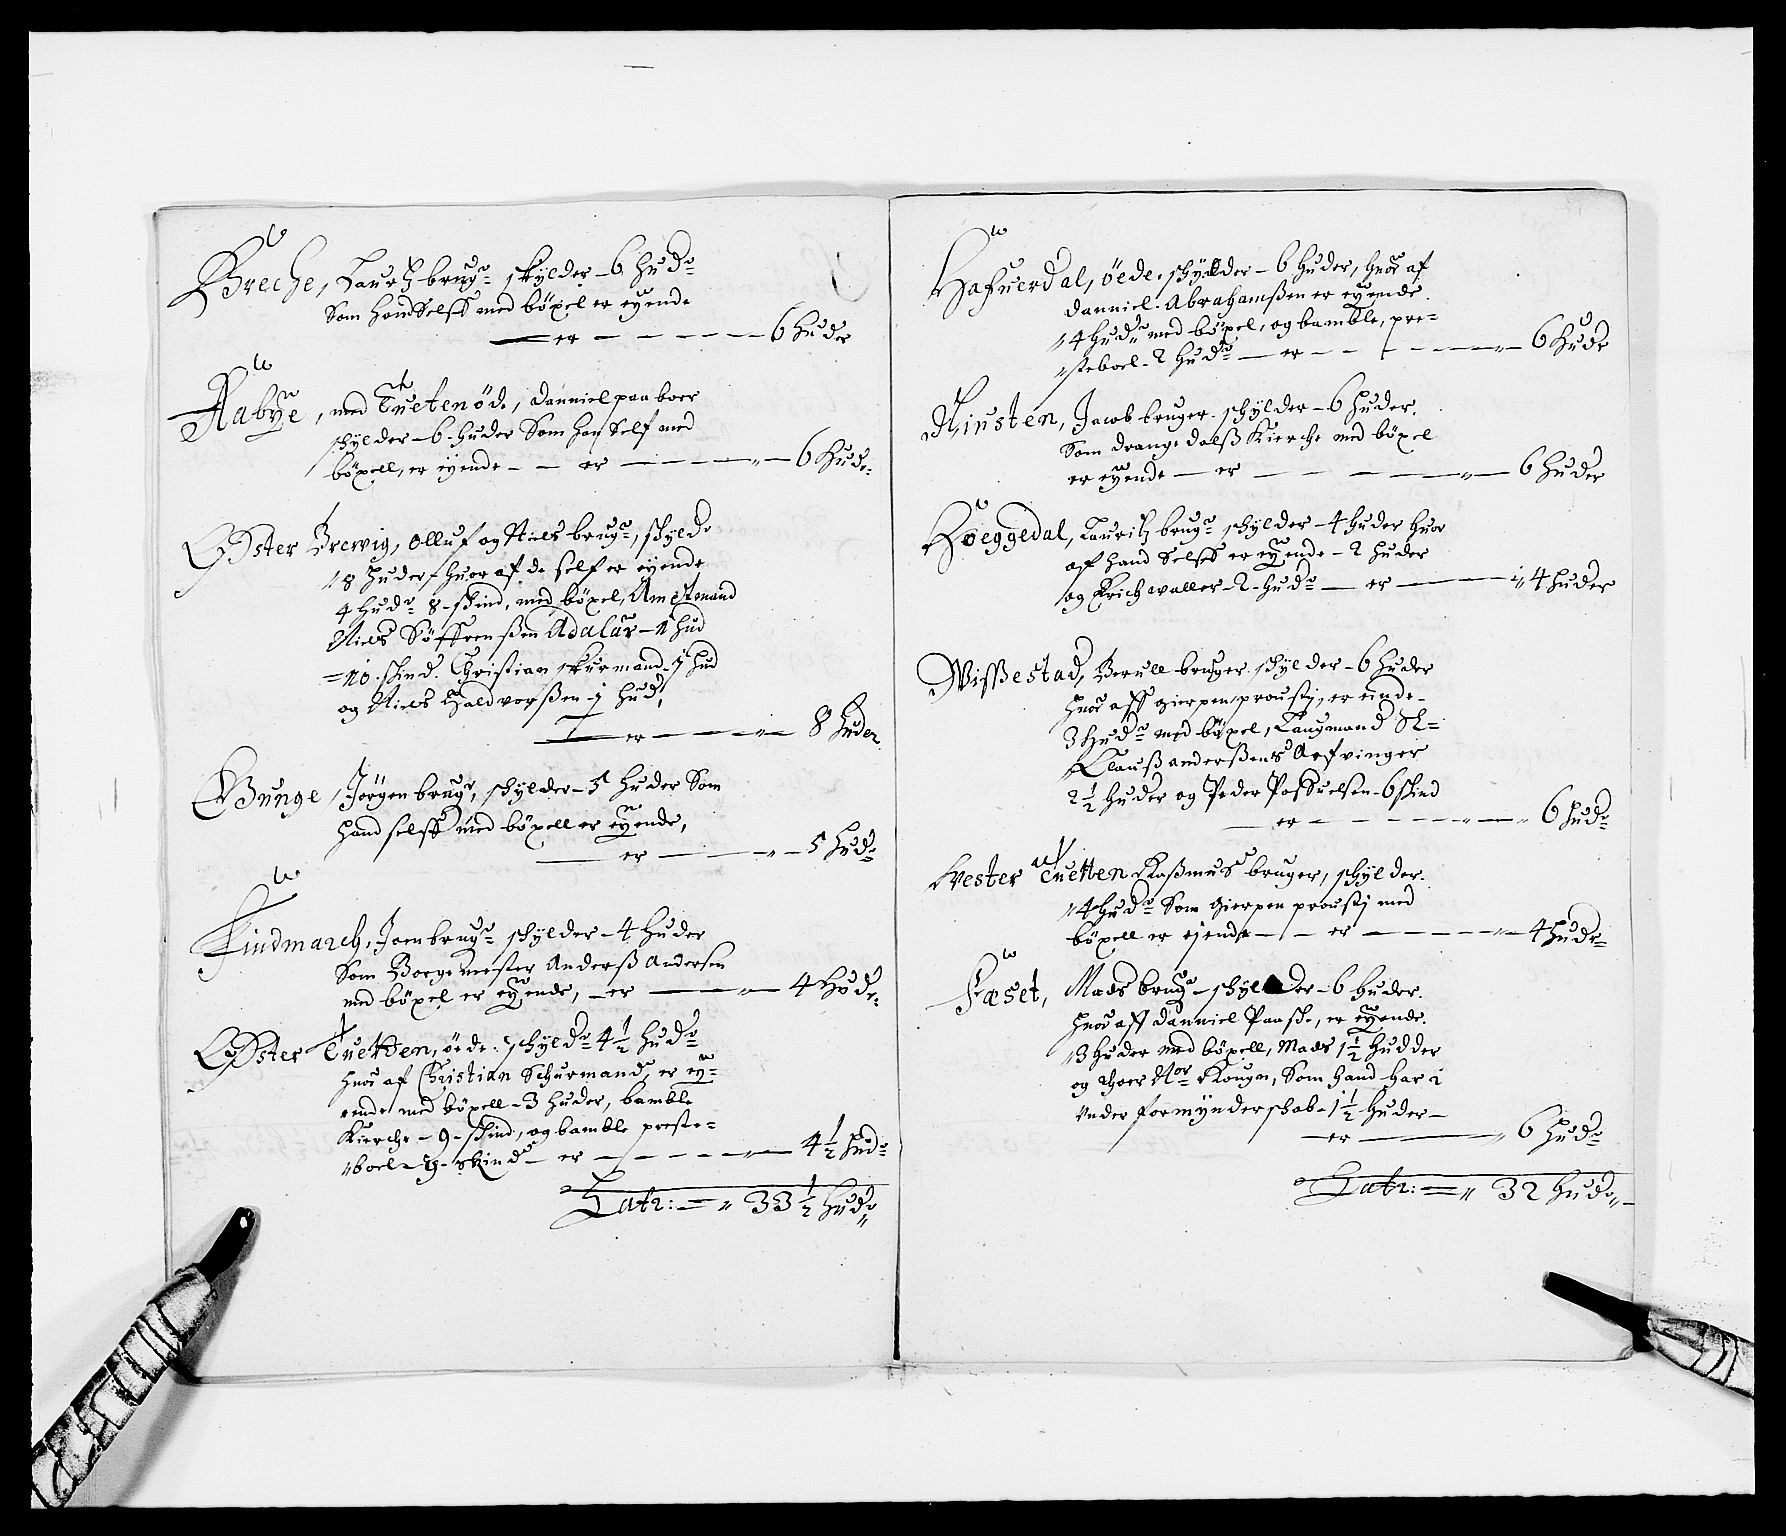 Breche, Lauritz brugr skylder - 6 hudr
Som hand Selff med böxel er eyende
er - 6 huder
Aabye, med Tueten öde, danniel paa boer
schylder - 6 - huder Som han Self med
böxell, er eyende - - er - 6 hudr
Öster Brewig, olluf og Niels brugr, skylde
8 huder - huor af de self er eyende
4 hudr 8 - skind, med böxel, Amptmand
Niels Söffrenßen Adalar - 1 hud
= 10 skind. Christian skurmand - 1 hud
og Niels Haldvorßen - 1 hud,
er - 8 huder
Bunge, Jörgen brugr, schylder - 5 huder Som
hand selff med böxell er eyende,
er - 5 hudr
Findmarch, Joen brugr schylder - 4 huder
Som Borgemester Anderß Andersen
med böxel er eyende, - er - 4 hudr
Öster Tuetten, öede. schyldr 4 1/2 hudr
huor af Christian Schurmand, er ey=
ende med böxell - 3 huder, bamble
Kierche - 9 - skind, og bamble preste=
boel - 9 - skind - er - 4 1/2 hudr
Latr: = 33 1/2 hudr
Hafuerdal, öede. schylder - 6 huder, huor af
danniel Abrahamßen er eyende
4 hudr med böxel, og bamble, pre=
steboel - 2 hudr - er - 6 hudr
Jacob bruger. schylder - 6 huder.
Som drangedalß Kierche med böxel
er eyende - er - 6 huder
Höeggedal, Lauritz brugr schylder - 4 huder huor
af hand Selff er eyende - 2 huder
og Erich waller - 2 - hudr - er - 4 huder
Wißestad, bruger. schylder - 6 huder
huor aff gierpen proustj, er einde -
3 hudr med böxel, Laugmand Sl=
Clauß anderßens Arfvinger
2 1/2 huder og Peder Poffuelsen - 6 skind
er - 6 hudr
Vester Tuetten Raßmus bruger, schylder.
4 hudr Som gierpen proustj med
böxell er ejende - - er - 4 hudr
Faset, Mads brugr - schylder - 6 huder.
huor aff danniel Paaske, er eyende.
3 huder med böxell, Mads 1 1/2 hudder
og Kougen, Som hand har i
Under formynderschab - 1 1/2 huder -
er - 6 hudr
Latr: = 32 hudr